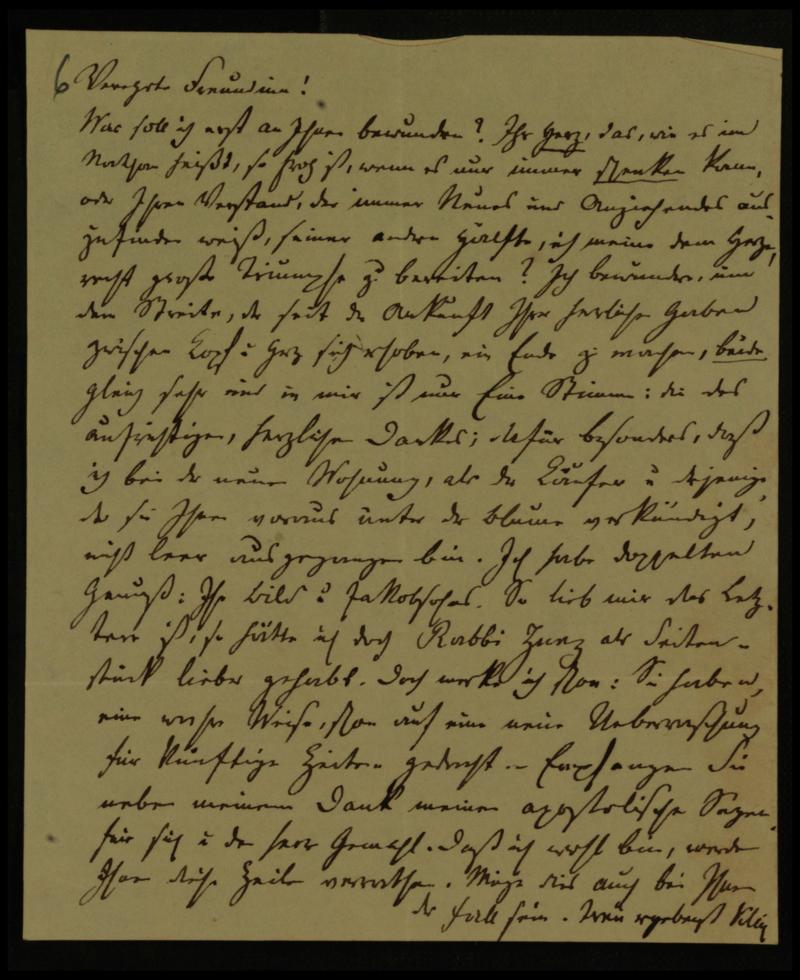 6 Verehrte Freundinn!
Was soll ich erst an Ihnen bewundern? Ihr Herz, das, wie es im
Nathan heißt, so froh ist, wenn es nur immer schenken kann,
oder Ihren Verstand, der immer Neues und Anziehendes aus-
zufinden weiß, seiner andren Hälfte, ich meine dem Herzen,
recht große Triumphe zu bereiten? Ich bewundere, um
dem Streite, der seit der Ankunft Ihrer herrlichen Gaben
zwischen Kopf u Herz sich erhoben, ein Ende zu machen, beide
gleich sehr und in mir ist nur Eine Stimme: die des
aufrichtigen, herzlichen Dankes; dafür besonders, daß
ich bei der neuen Wohnung, als der Käufer u derjenige,
der sie Ihnen voraus unter der Blume verkündigt,
nicht leer ausgegangen bin. Ich habe doppelten
Genuß: Ihr Bild u Jakobsohns. So lieb mir das Letz-
tere ist, so hätte ich doch Rabbi Zunz als Seiten-
stück lieber gehabt. Doch merke ich schon: Sie haben,
eine wahre Weise, schon auf eine neue Ueberraschung
für künftige Zeiten gedacht. – Empfangen Sie
neben meinem Dank meinen apostolischen Segen
für sich u den Herr Gemahl. Daß ich wohl bin, werden
Ihnen diese Zeilen verrathen. Möge dies auch bei Ihnen
der Fall sein. Treu ergebenst